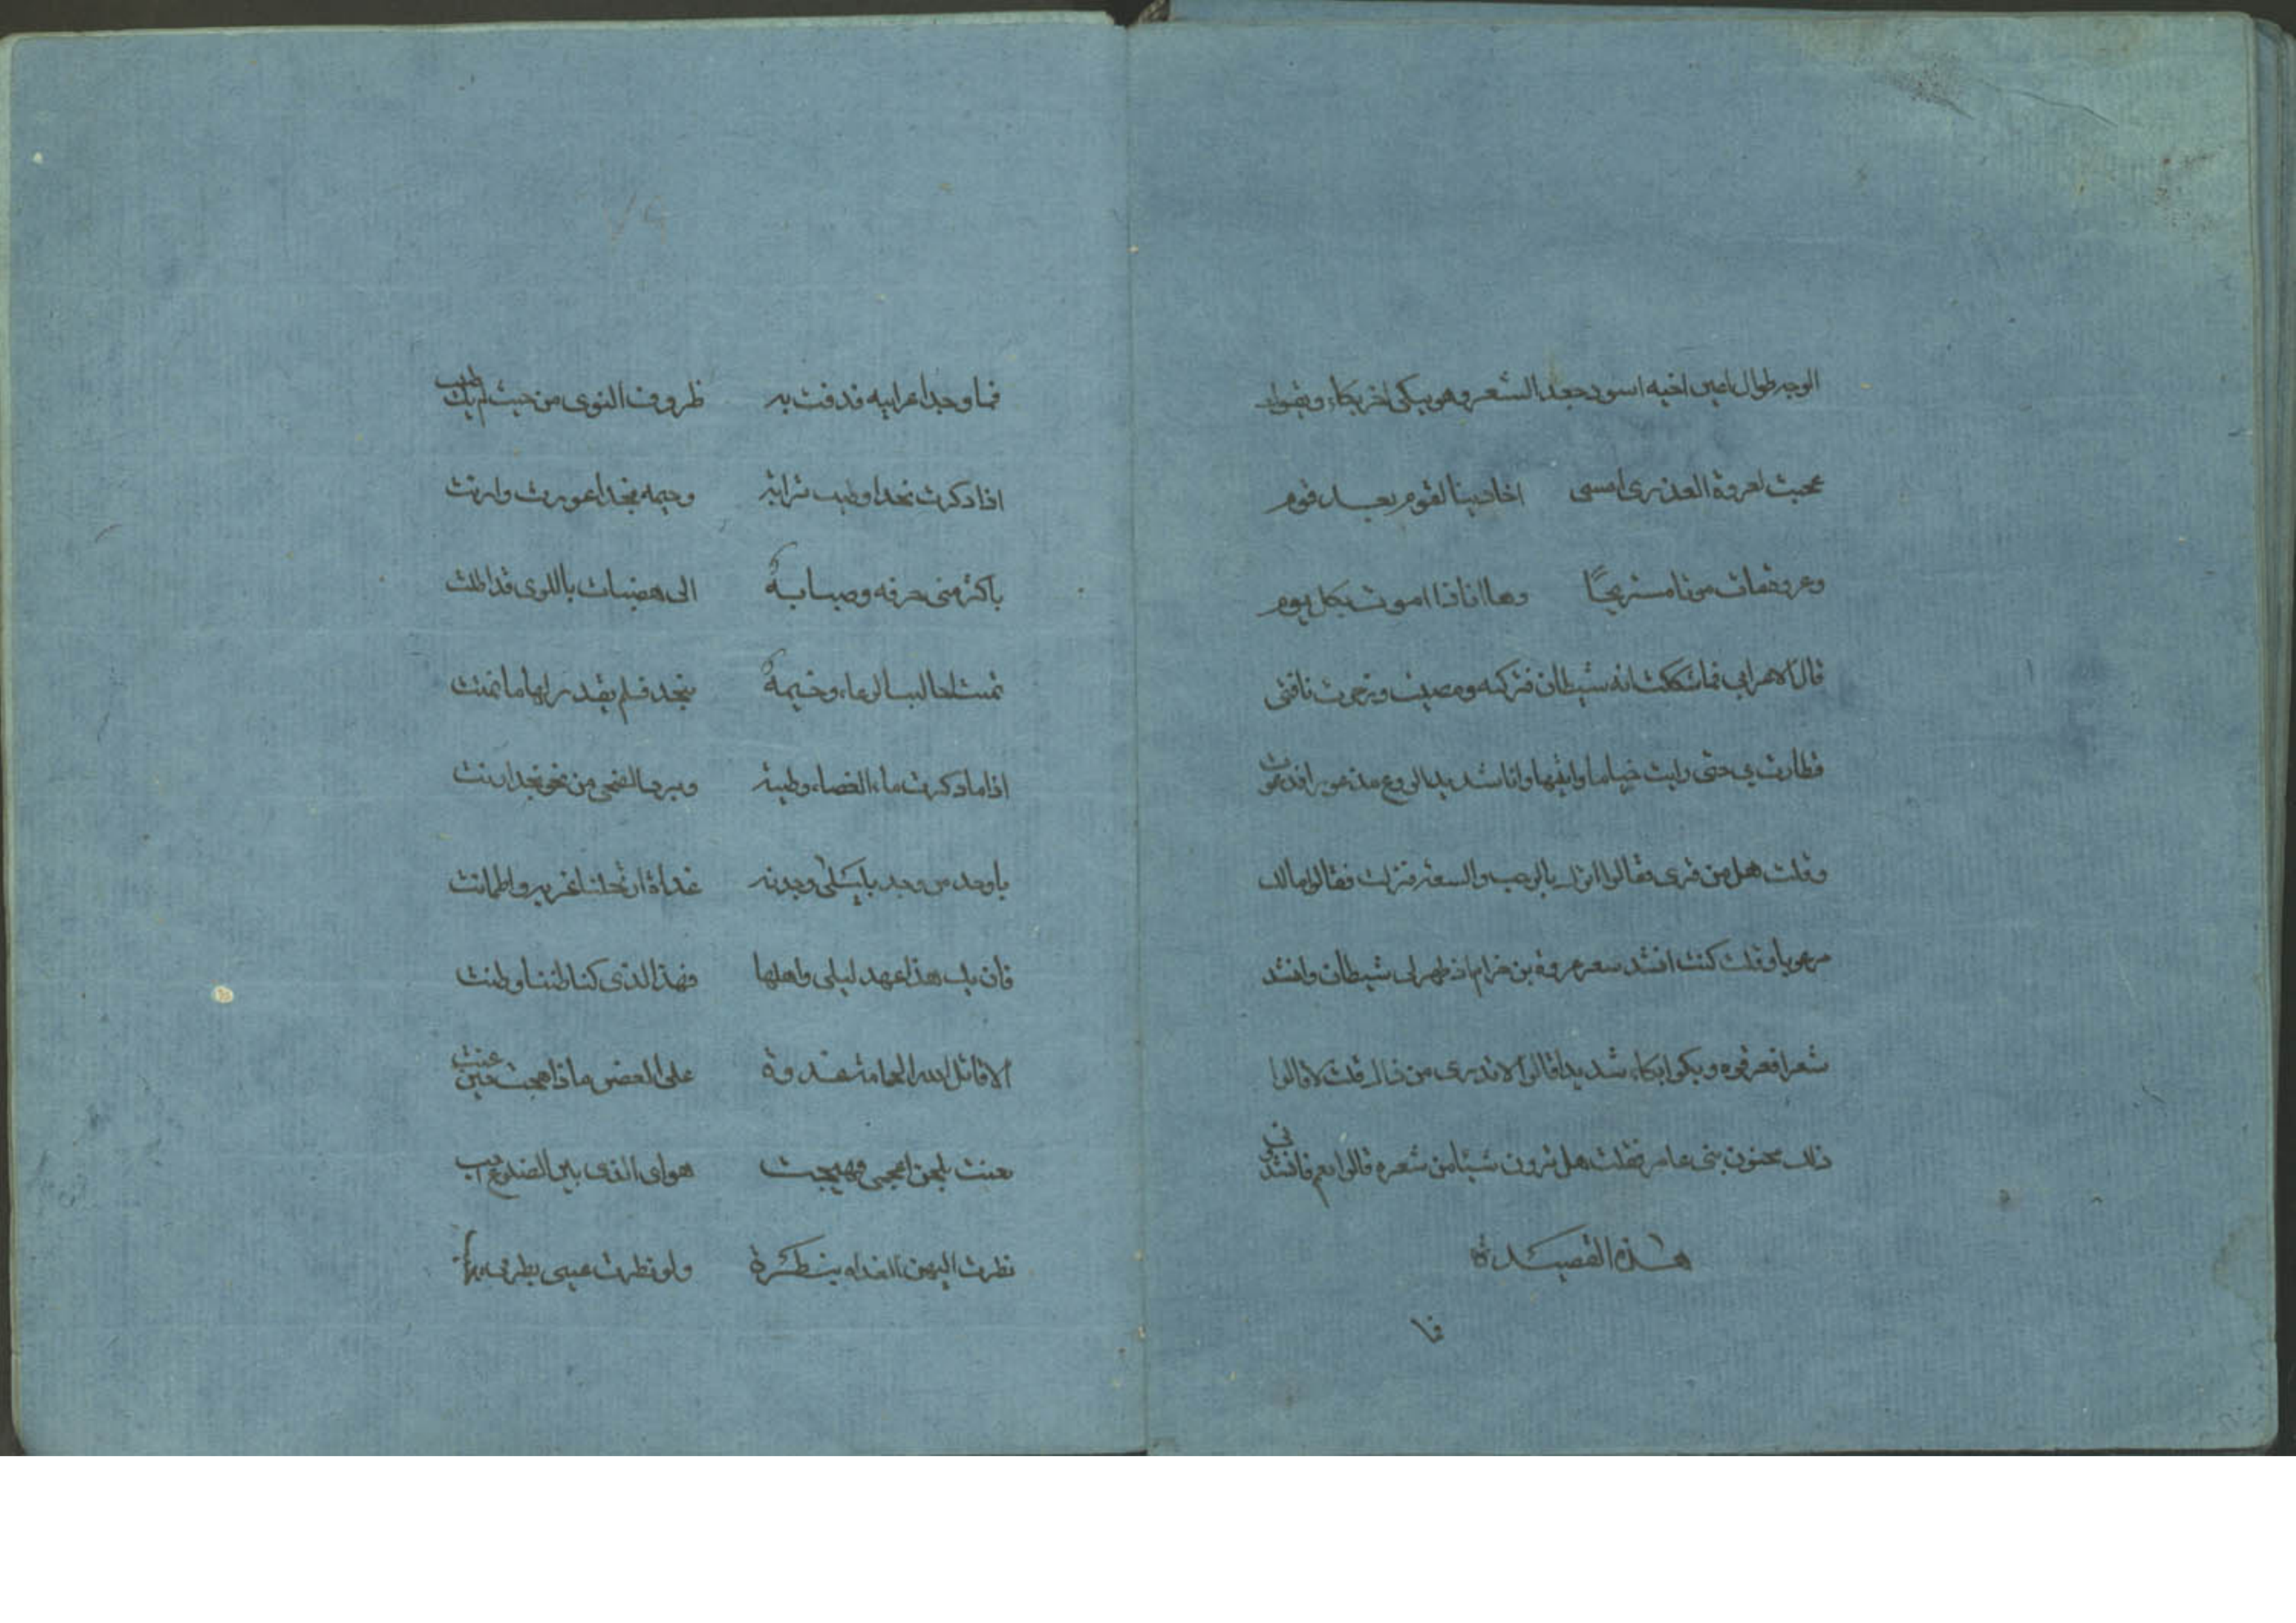 الوجه طوال اعين اخيه اسود جعد الشعر وهو يبكى اخر بكاء ويقول
عجبت لعروة العذرى امسى احاديثا لقوم بعد قوم
وعروة مات موتا مستريحًا وها انا ذا اموت بكل يوم
قال الاعرابي فما شككت انه شيطان فتركته ومضيت وزجرت ناقتى
فطارت بي حتى رايت خياما واتيتها وانا شديد الروع مذعورا فدعوت
وقلت هل من قرى فقالوا انزل بالرحب والسعة فنزلت فقالوا مالك
مرعوبا وقلت كنت انشد شعر عروة بن خزام اذ ظهر لى شيطان وانشد
شعرا فعرفوه وبكوا بكاء شديدا قالوا الا تدرى من ذاك قلت لا قالوا
ذلك مجنون بنى عامر فقلت هل ترون شيئا من شعره قالوا نعم فانشدنى
هذه القصيدة
فما
فما وجد اعرابيه قدفت به ظروف النوى من حيث لم يك طيب
اذا دكرت نجدا وطيب ترابه وخيمه نجدا عورت وارنت
باكثر منى حرقه وصبابةً الى هضبات باللوى قد اظلت
تمنت احاليب الرعاء وخيمةً بنجد فلم يقدر لها ما تمنت
اذا ما دكرت ماء الفضاء وطيبه وبرد الضحى من نحو نجد ارنت
باوجد من وجد بليلى وجدته غداة ارتحلنا غربه واطمانت
فان يك هذا عهد ليلى واهلها فهذا الذى كنا ظننا وظنت
الا قاتل الله الحمامة غدوة على الغصن ماذا هيجت حين غنت
تغنت بلحن اعجمى فهيجت هواى الذى بين الضلوع
نظرت اليهن الغداه بنظرة ولو نظرت عينى بطرف